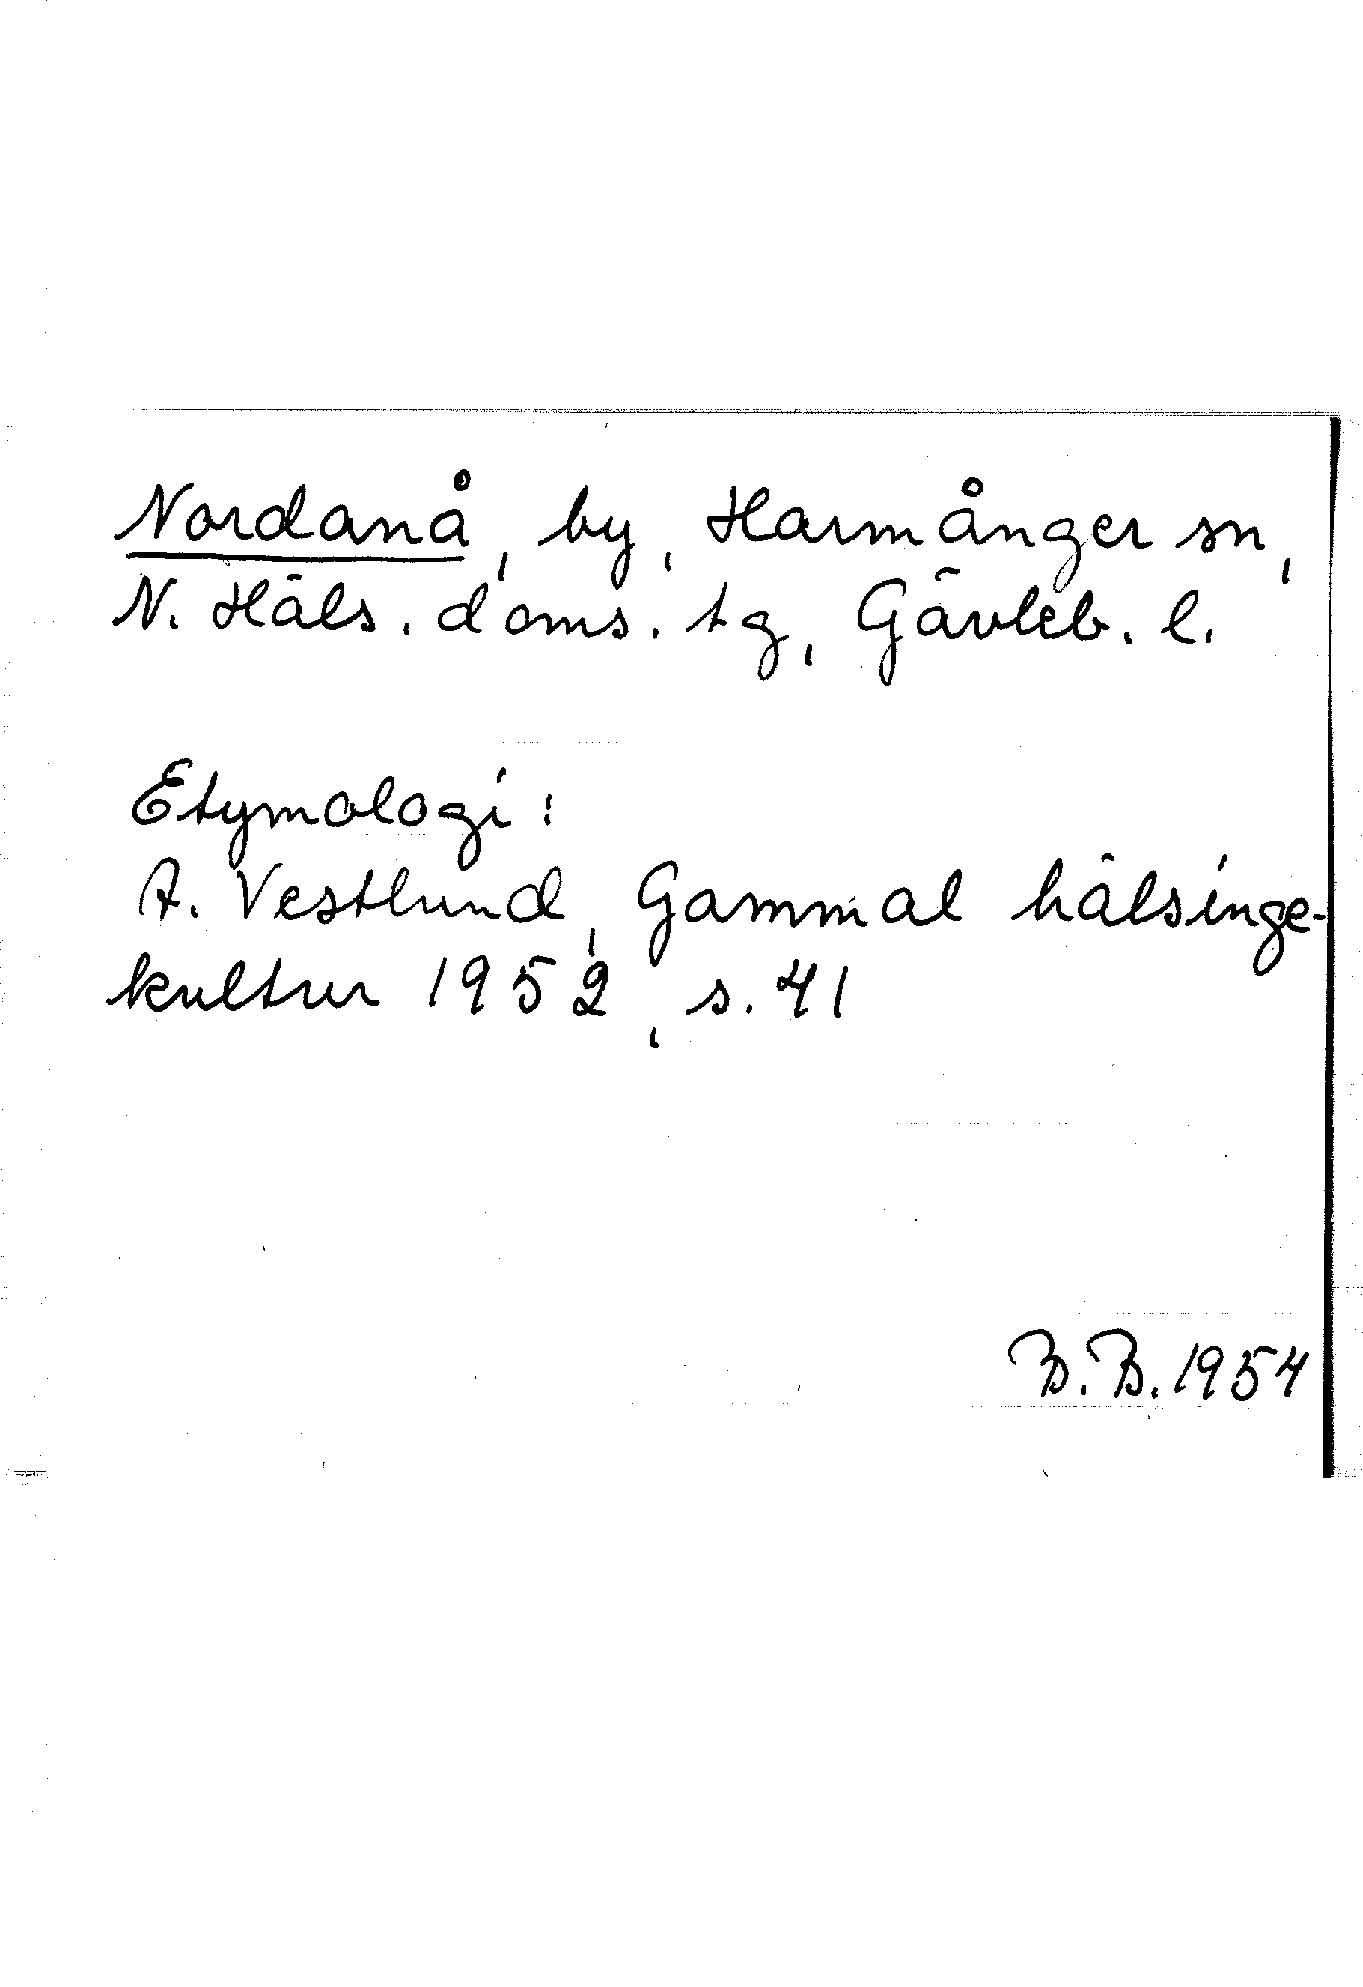 Nordanå, by, Harmånger sn,
N. Häls. doms. tg, Gävleb. l.
Etymologi:
A. Vestlund, Gammal hälsinge-
kultur 1952, s. 41
B.B. 1954